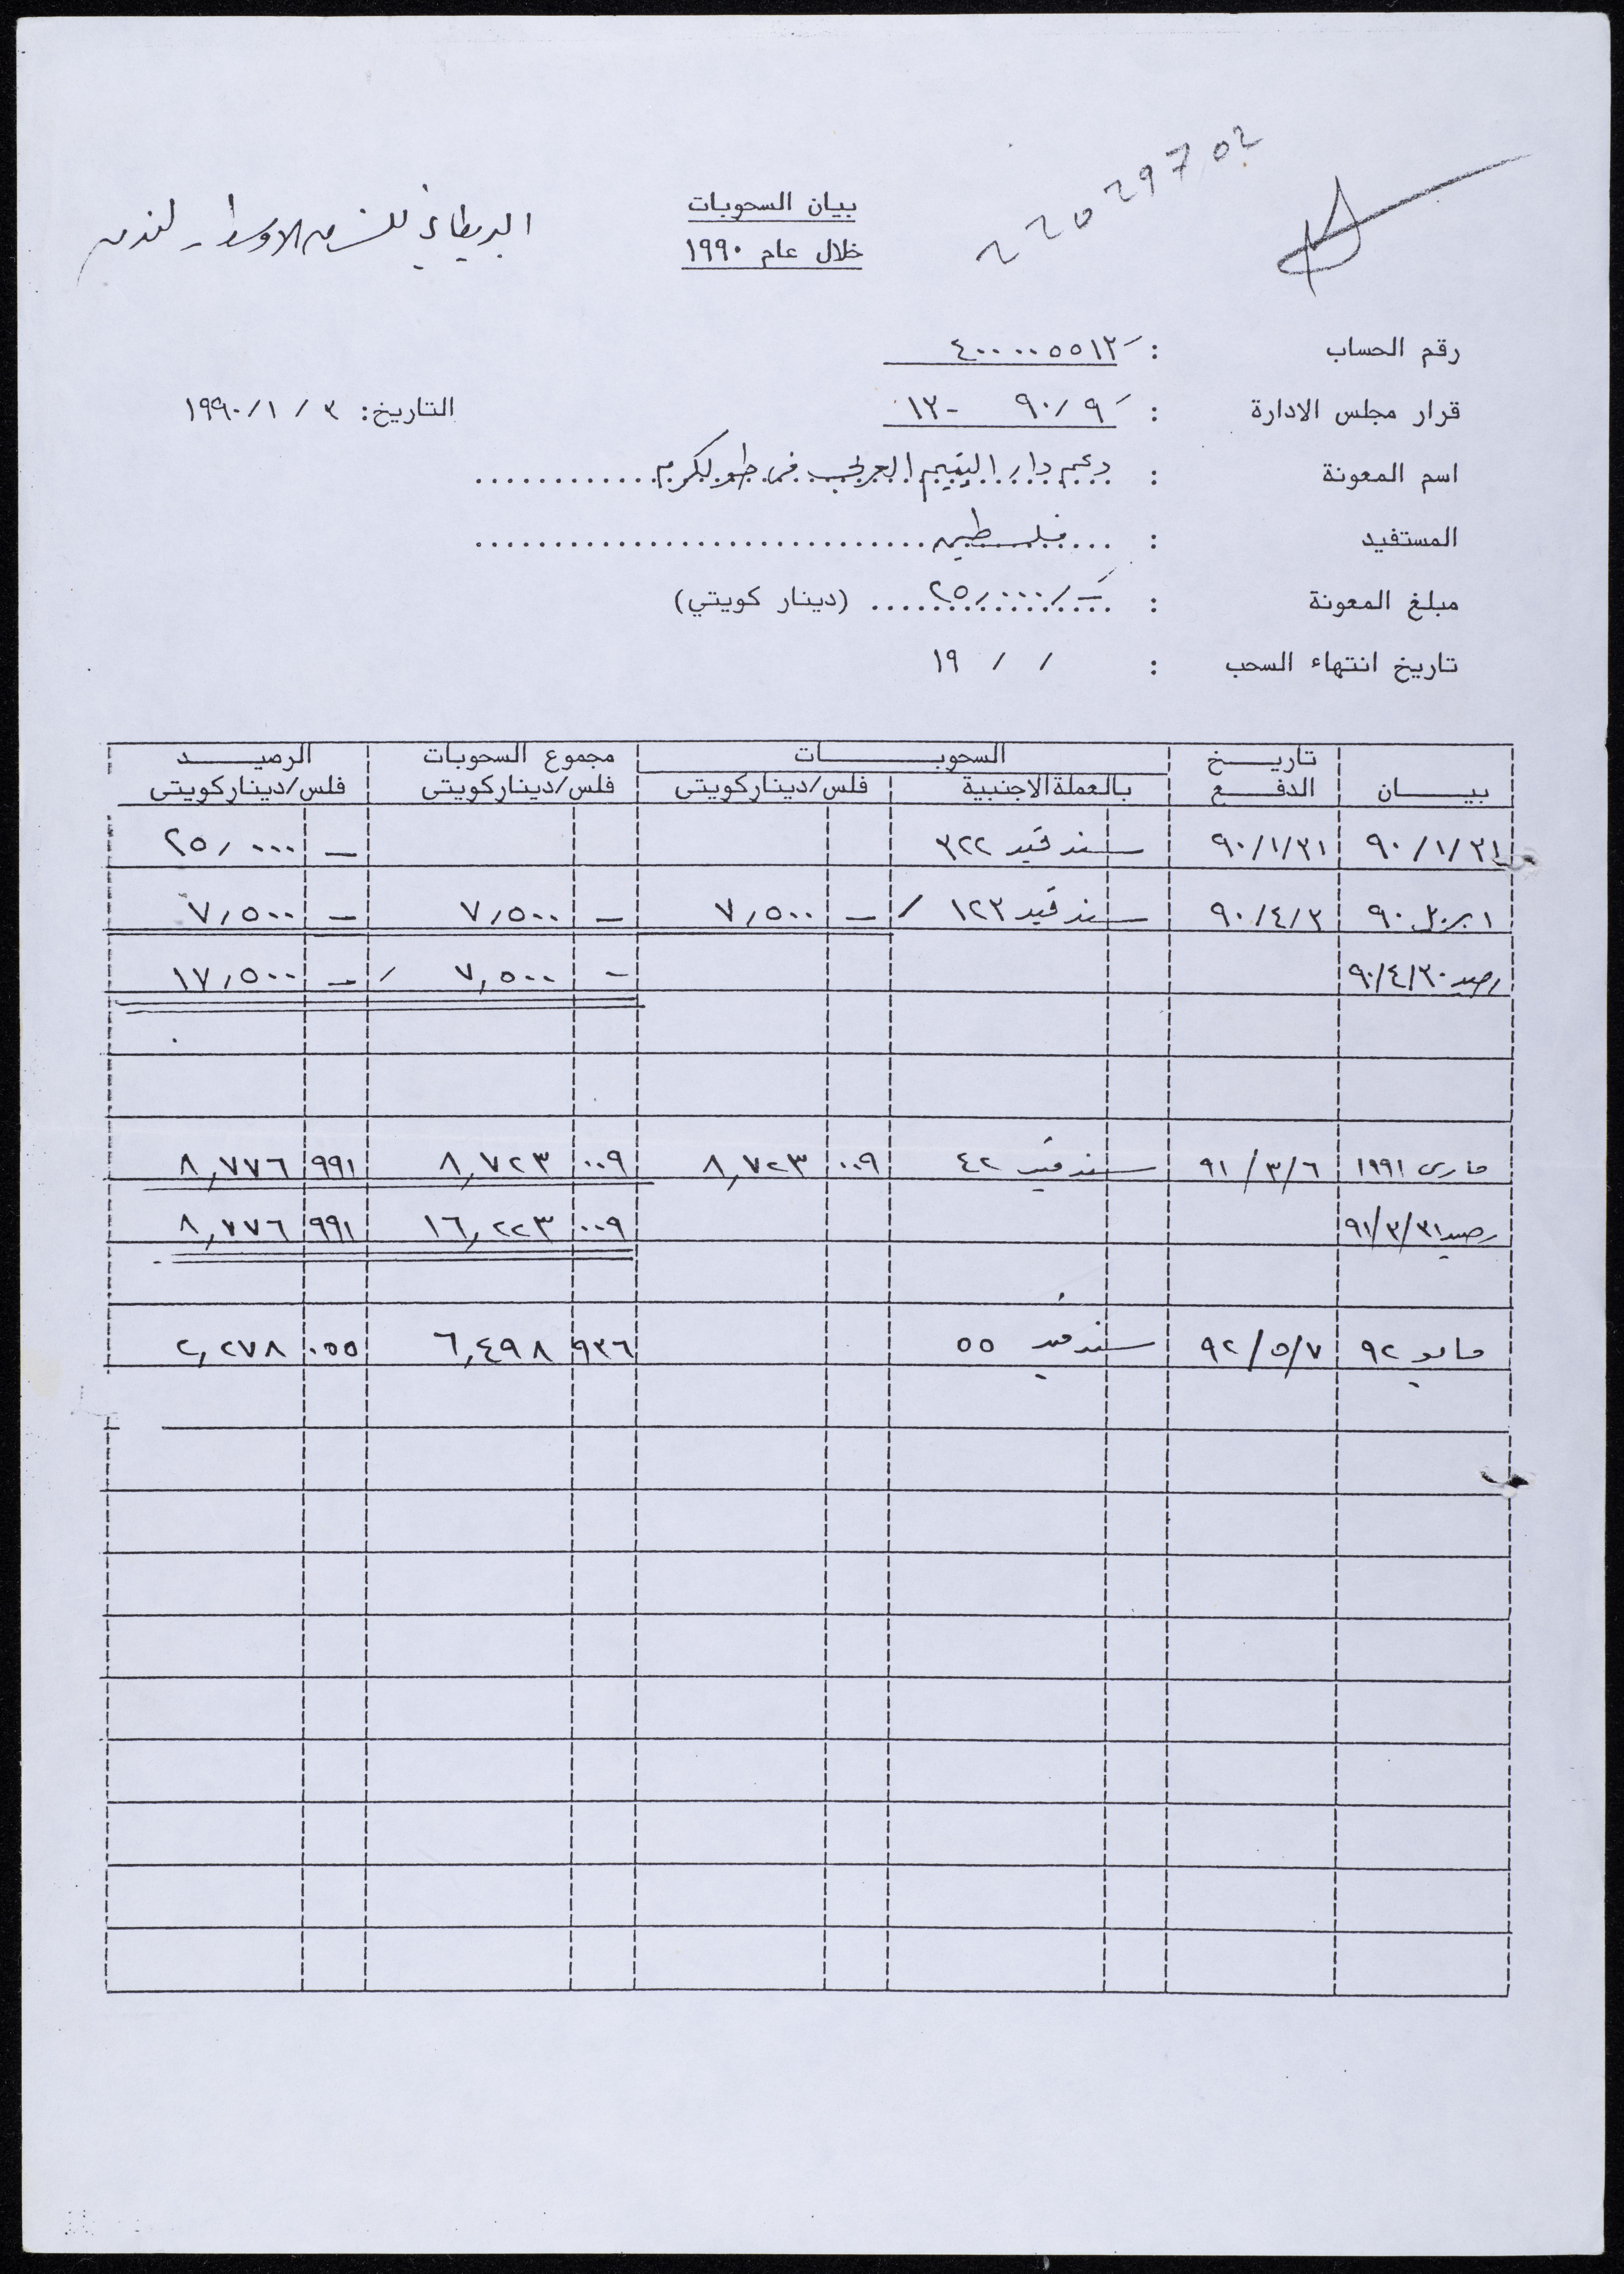 22029702
البريطاني للشرق الاوسط - لندن
بيان السحوبات
خلال عام ١٩٩٠
رقم الحساب : ٤٠٠٠٠٠٥٥١٢
قرار مجلس الادارة : ٩٠/٩ -١٢ التاريخ: ٣ / ١ /١٩٩٠
اسم المعونة : دعم دار اليتيم العربي في طولكرم
المستفيد : فلسطين
مبلغ المعونة : ٢٥,٠٠٠/- (دينار كويتي)
تاريخ انتهاء السحب : / / ١٩
بيـــان تاريـــخ الدفــع السحوبـــات مجموع السحوبات الرصيــد
بالعملة الاجنبية فلس/دينار كويتى فلس/دينار كويتى فلس/دينار كويتى
٩٠/١/٣١ ٩٠/١/٣١ سند قيد ٣٢٢ - ٢٥,٠٠٠
ابريل ٩٠ ٩٠/٤/٣ سند قيد ١٢٣ / - ٧,٥٠٠ - ٧,٥٠٠ - ٧,٥٠٠
رصيد ٩٠/٤/٣٠ - ٧,٥٠٠ / - ١٧,٥٠٠
مارس ١٩٩١ ٩١/٣/٦ سند قيد ٤٢ ٠٠٩ ٨,٧٢٣ ٠٠٩ ٨,٧٢٣ ٩٩١ ٨,٧٧٦
رصيد ٩١/٣/٣١ ٠٠٩ ١٦,٢٢٣ ٩٩١ ٨,٧٧٦
مايو ٩٢ ٩٢/٥/٧ سند قيد ٥٥ ٩٣٦ ٦,٤٩٨ ٠٥٥ ٢,٢٧٨